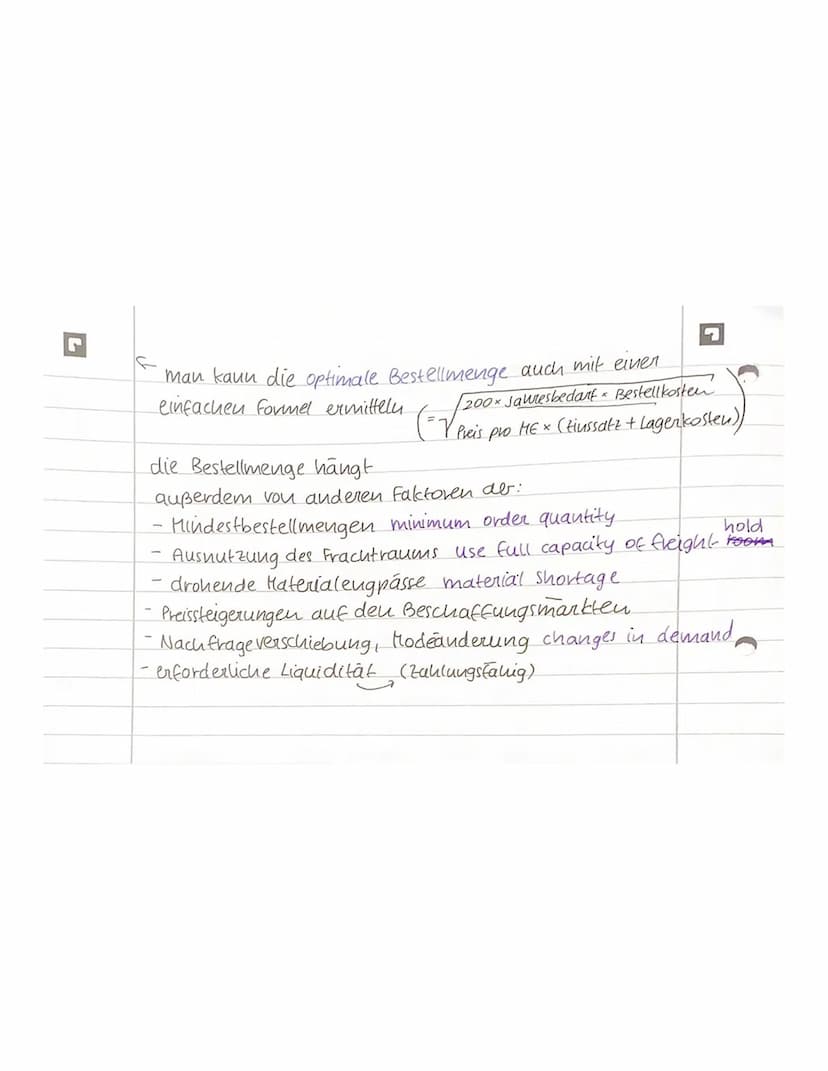 man kann die optimale Bestellmenge auch mit einer
einfachen Formel ermitteln (= √ 200 × Jahresbedarf × Bestellkosten
Preis pro ME × (Zinssatz + Lagerkosten))
die Bestellmenge hängt
außerdem von anderen Faktoren ab:
- Mindestbestellmengen minimum order quantity
hold
- Ausnutzung des Frachtraums use full capacity of freight room
- drohende Materialengpässe material shortage
- Preissteigerungen auf den Beschaffungsmärkten
- Nachfrageverschiebung, Modeänderung changes in demand
- erforderliche Liquidität (Zahlungsfähig)